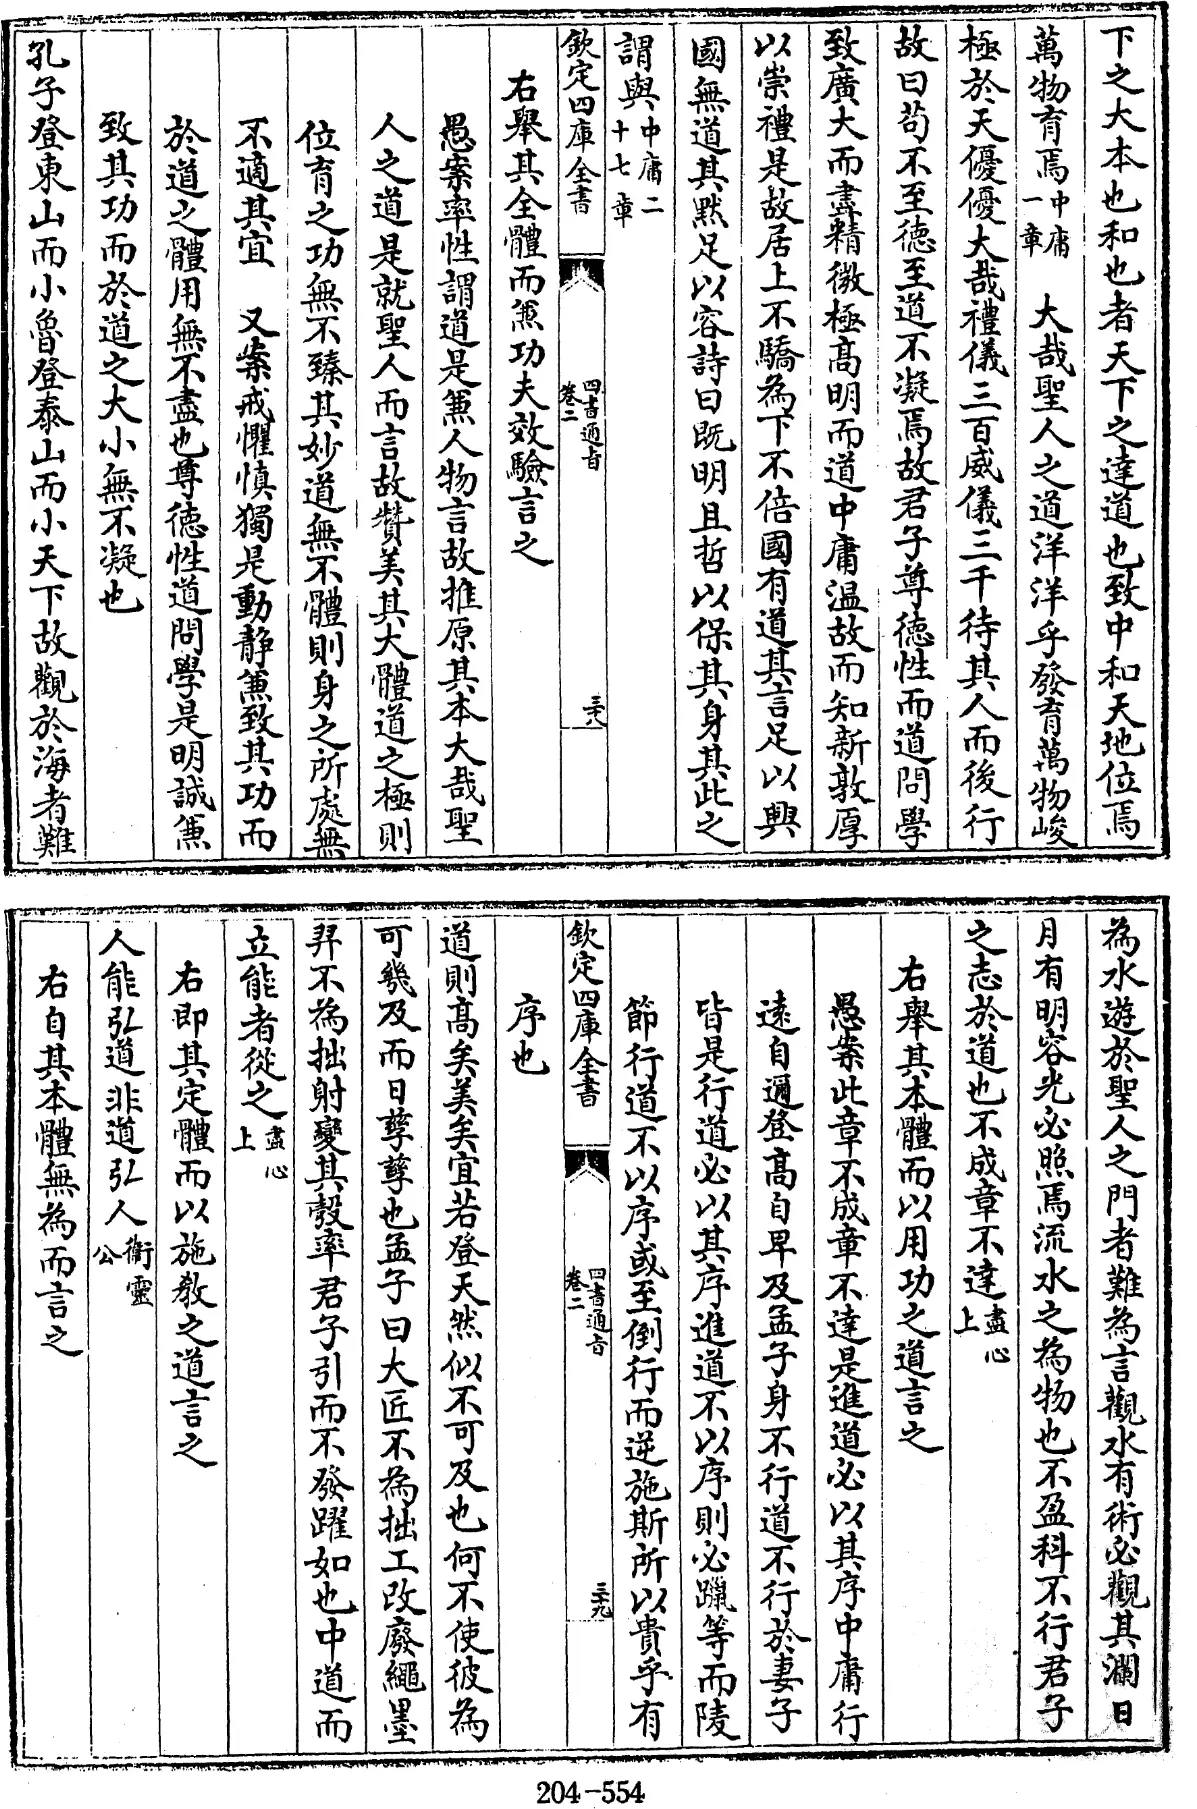 下之大本也和也者天下之達道也致中和天地位焉
萬物育焉中庸一章　大哉聖人之道洋洋乎發育萬物峻
極於天優優大哉禮儀三百威儀三千待其人而後行
故曰苟不至徳至道不凝焉故君子尊徳性而道問學
致廣大而盡精微極髙明而道中庸温故而知新敦厚
以崇禮是故居上不驕為下不倍國有道其言足以興
國無道其黙足以容詩曰既明且哲以保其身其此之
謂與中庸二十七章
欽定四庫全書　四書通旨卷二　三八
右舉其全體而兼功夫效驗言之
愚案率性謂道是兼人物言故推原其本大哉聖
人之道是就聖人而言故贊美其大體道之極則
位育之功無不臻其妙道無不體則身之所處無
不適其宜　又案戒懼慎獨是動靜兼致其功而
於道之體用無不盡也尊徳性道問學是明誠兼
致其功而於道之大小無不凝也
孔子登東山而小魯登泰山而小天下故觀於海者難
為水遊於聖人之門者難為言觀水有術必觀其瀾日
月有明容光必照焉流水之為物也不盈科不行君子
之志於道也不成章不達盡心上
右舉其本體而以用功之道言之
愚案此章不成章不達是進道必以其序中庸行
逺自邇登髙自卑及孟子身不行道不行於妻子
皆是行道必以其序進道不以序則必躐等而陵
節行道不以序或至倒行而逆施斯所以貴乎有
欽定四庫全書　四書通旨卷二　三九
序也
道則髙矣美矣宜若登天然似不可及也何不使彼為
可幾及而日孳孳也孟子曰大匠不為拙工改廢繩墨
羿不為拙射變其彀率君子引而不發躍如也中道而
立能者從之盡心上
右即其定體而以施教之道言之
人能弘道非道弘人衛靈公
右自其本體無為而言之
204-554